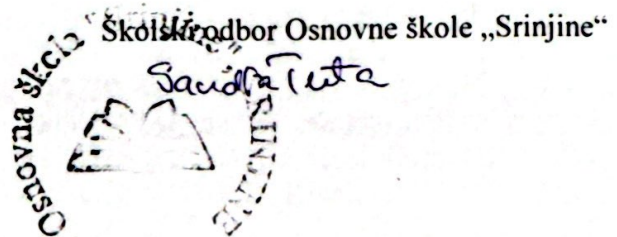 Školski odbor Osnovne škole „Srinjine“
Sandra Tuta
Osnovna škola „Srinjine“ SRINJINE